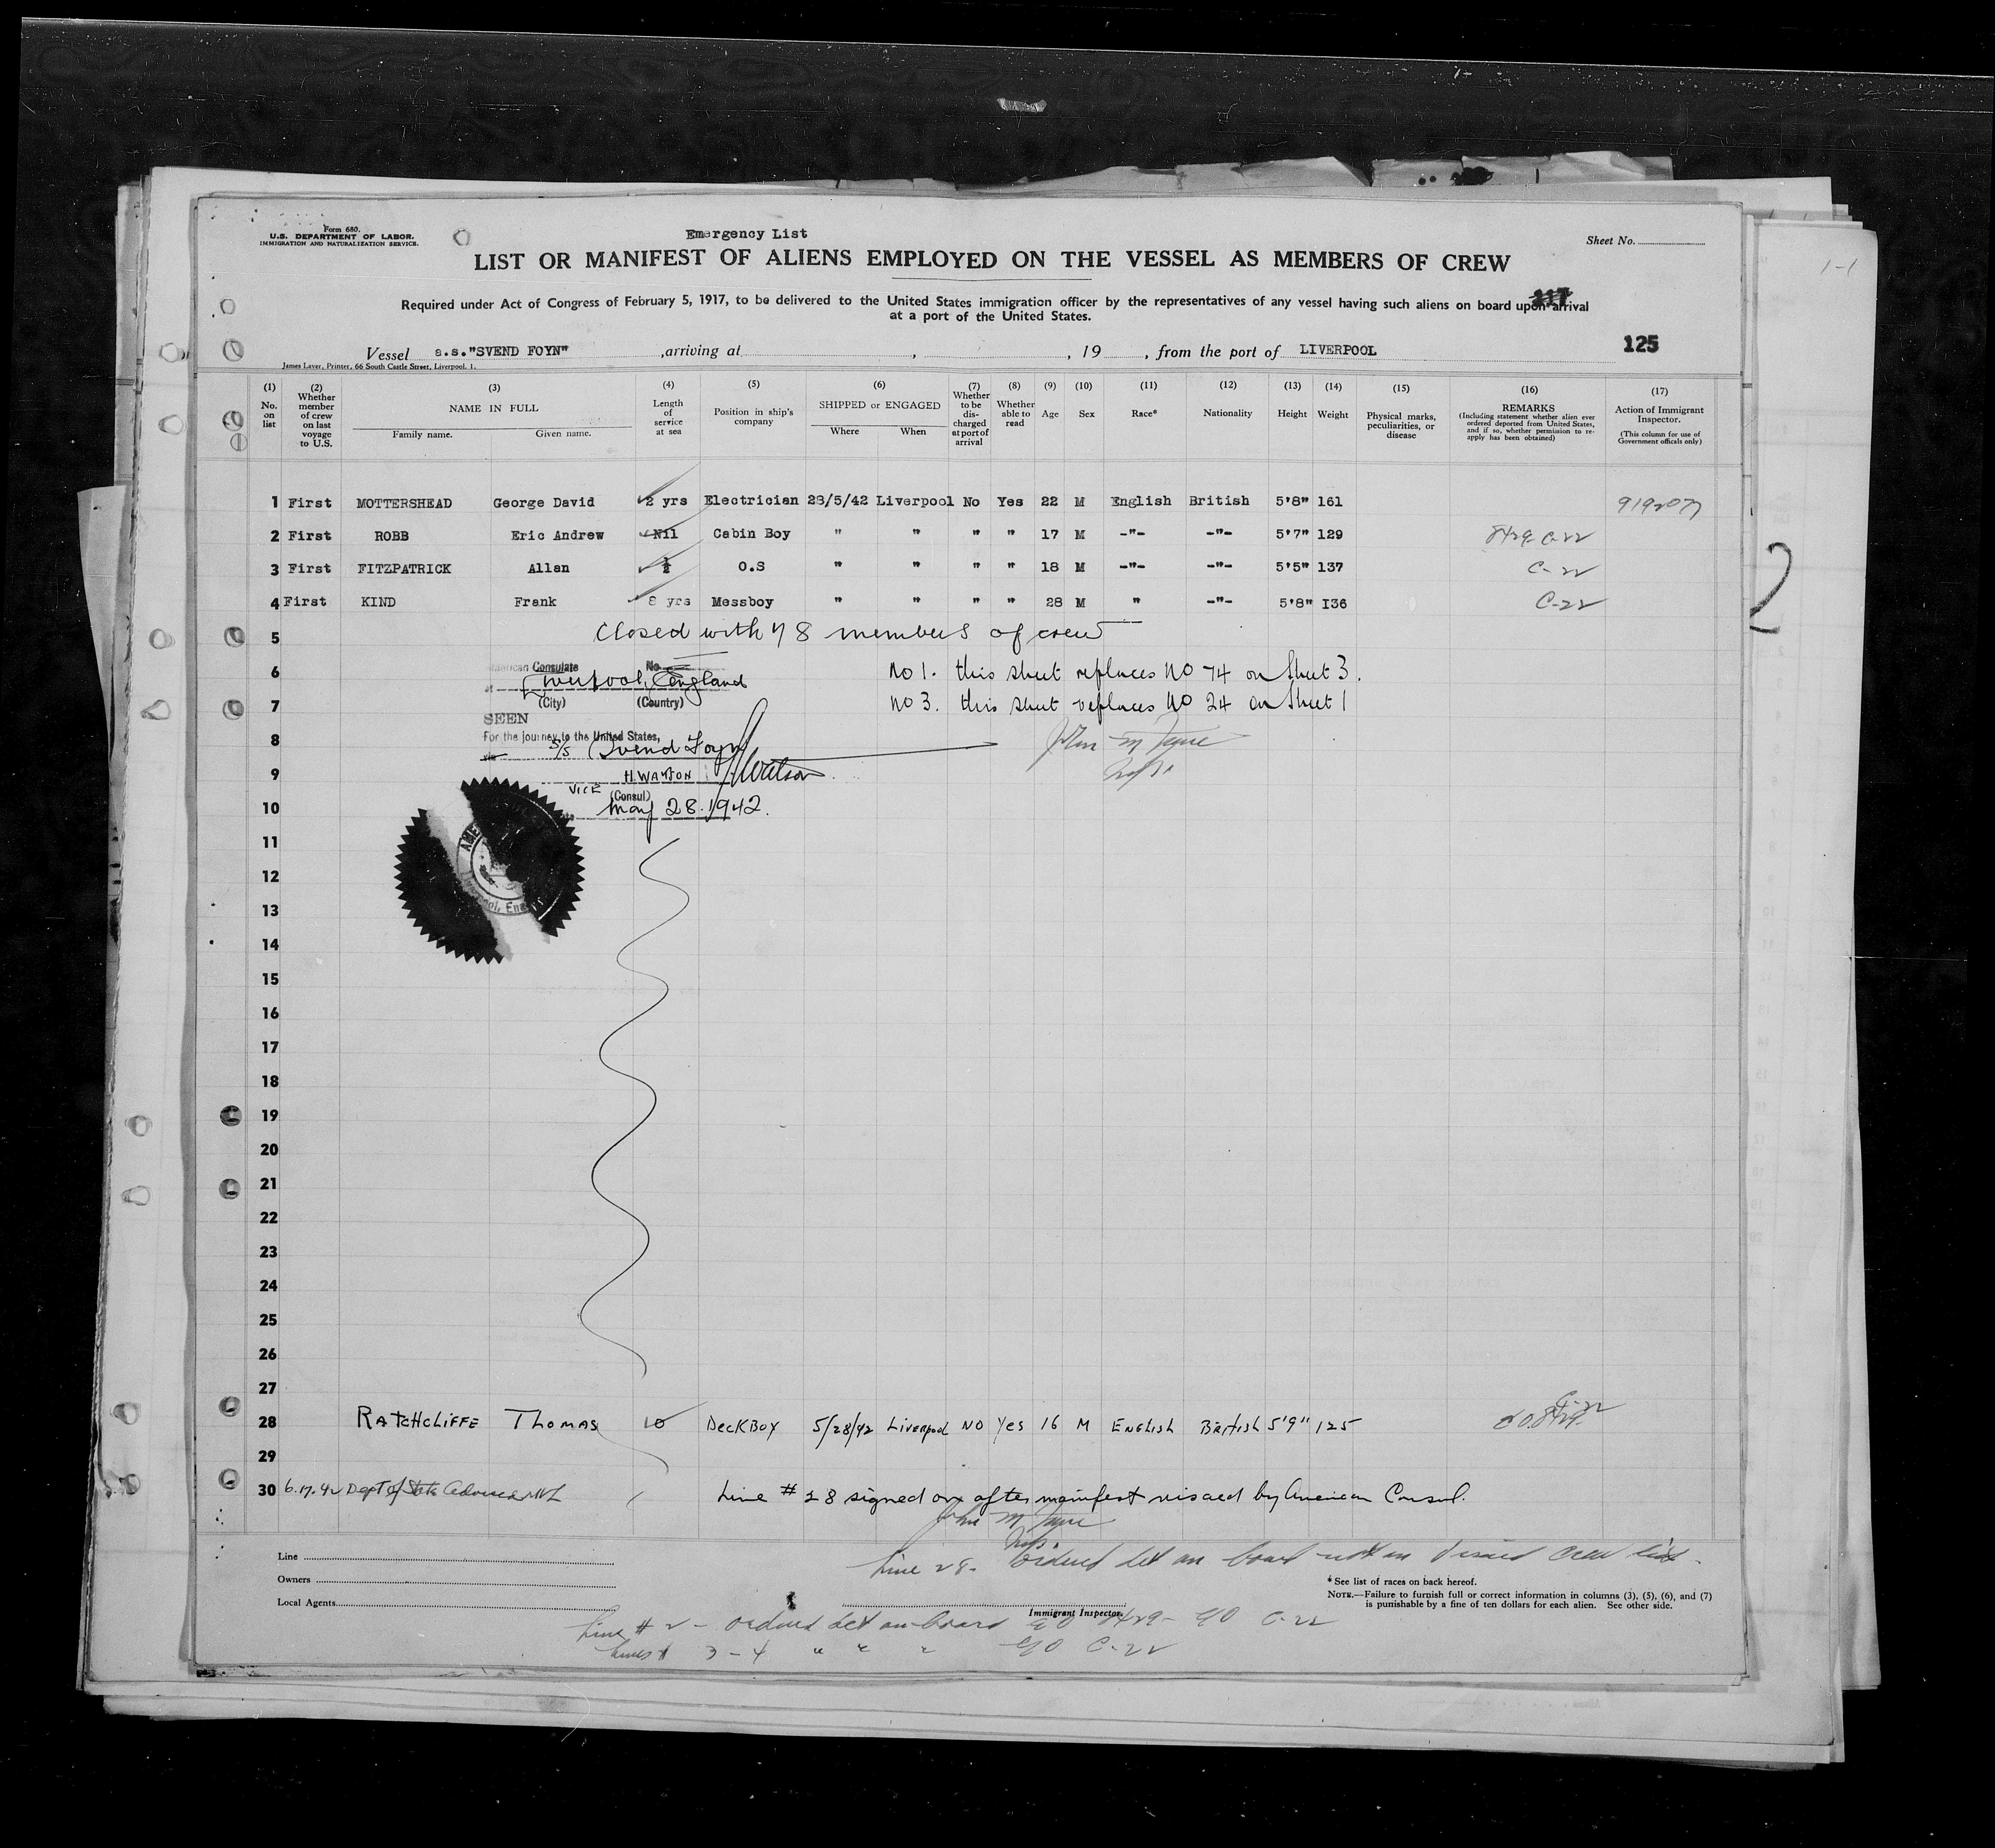 Form 680.
U.S. DEPARTMENT OF LABOR.
IMMIGRATION AND NATURALIZATION SERVICE.
Emergency List
Sheet No.
LIST OR MANIFEST OF ALIENS EMPLOYED ON THE VESSEL AS MEMBERS OF CREW
1-1
Required under Act of Congress of February 5, 1917, to be delivered to the United States immigration officer by the representatives of any vessel having such aliens on board upon arrival
at a port of the United States.
117
Vessel s.s."SVEND FOYN" ,arriving at , , 19 , from the port of LIVERPOOL 125
James Laver, Printer, 66 South Castle Street, Liverpool. 1.
(1) No. on list
(2) Whether member of crew on last voyage to U.S.
(3) NAME IN FULL Family name. Given name.
(4) Length of service at sea
(5) Position in ship's company
(6) SHIPPED or ENGAGED Where When
(7) Whether to be discharged at port of arrival
(8) Whether able to read
(9) Age
(10) Sex
(11) Race*
(12) Nationality
(13) Height
(14) Weight
(15) Physical marks, peculiarities, or disease
(16) REMARKS (Including statement whether alien ever ordered deported from United States, and if so, whether permission to re-apply has been obtained)
(17) Action of Immigrant Inspector. (This column for use of Government officals only)
1 First MOTTERSHEAD George David 2 yrs Electrician 28/5/42 Liverpool No Yes 22 M English British 5'8" 161
2 First ROBB Eric Andrew Nil Cabin Boy " " " " 17 M -"- -"- 5'7" 129 8429 C-22
3 First FITZPATRICK Allan O.S " " " " 18 M -"- -"- 5'5" 137 C-22
4 First KIND Frank 8 yrs Messboy " " " " 28 M " -"- 5'8" I36 C-22
2
5 Closed with 78 members of crew
6 American Consulate No
at Liverpool, England
no 1. this sheet replaces no 74 on sheet 3.
(City) (Country)
7 no 3. this sheet replaces no 24 on sheet 1
SEEN
8 For the journey to the United States,
via S/S Svend Foyn
9 H. WATSON HWatson
VICE (Consul)
10 May 28. 1942.
11
12
13
14
15
16
17
18
19
20
21
22
23
24
25
26
27
28 RATCHCLIFFE THOMAS 10 DECKBOY 5/28/42 Liverpool NO Yes 16 M ENGLISH BRITISH 5'9" 125 C-22
29
30 6.17.42 Dept of State advised
Line #28 signed on after manifest visaed by American Consul.
John M
Line
Line 28. Ordered det on board not on visaed crew list.
Owners
* See list of races on back hereof.
Local Agents
NOTE.—Failure to furnish full or correct information in columns (3), (5), (6), and (7)
is punishable by a fine of ten dollars for each alien. See other side.
Immigrant Inspector.
Line # 2 - ordered det on board 8429 - C-22
Lines # 3-4 " " " C-22